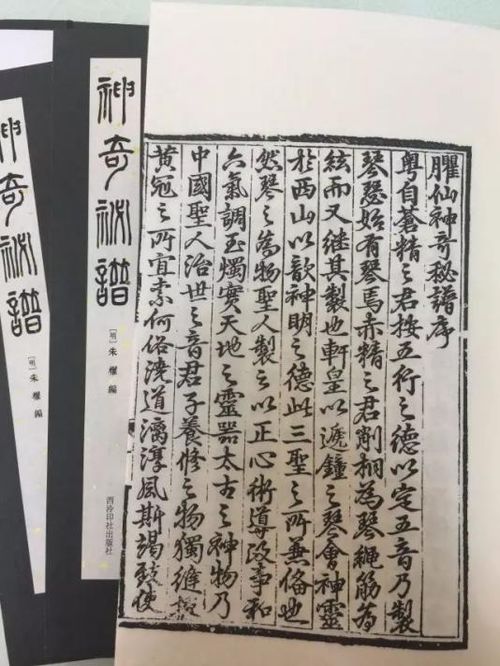 臞仙神奇秘譜序
粤自蒼精之君按五行之德以定五音乃製
琴瑟始有琴焉赤精之君削桐為琴繩筋為
絃而又继其製也軒皇以遞鐘之琴會神靈
於西山以歆神明之德此三聖之所兼俻也
然琴之為物聖人製之以正心術導政事和
六氣調玉燭實天地之靈器太古之神物乃
中國聖人治世之音君子養修之物獨縫掖
黄冠之所宜素何俗澆道漓淳風斯竭致使
神奇祕譜
［明］朱權 編
西泠印社出版社
神奇祕譜
［明］朱權 編